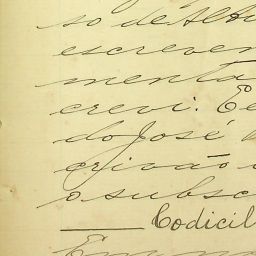 so de Al
escreven
menta
crevi. E
do José
crivão
o subsc
Codicil